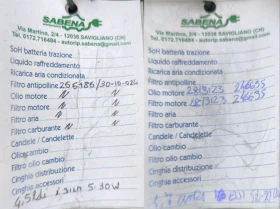 SABENA
Via Martina, 2/4 - 12038 SAVIGLIANO (CN)
Tel. 0172.716494 - autorip.sabena@gmail.com
SoH batteria trazione
Liquido raffreddamento
Ricarica aria condizionata
Filtro antipolline 266986/30-10-024
Olio motore N
Filtro motore N
Filtro aria N
Filtro carburante N
Candele / Candelette
Olio cambio
Filtro olio cambio
Cinghia distribuzione
Cinghia accessori
5-30W
SABENA
Via Martina, 2/4 - 12038 SAVIGLIANO (CN)
Tel. 0172.716494 - autorip.sabena@gmail.com
SoH batteria trazione
Liquido raffreddamento
Ricarica aria condizionata
Filtro antipolline
Olio motore
Filtro motore
Filtro aria
Filtro carburante
Candele / Candelette
Olio cambio
Filtro olio cambio
Cinghia distribuzione
Cinghia accessori